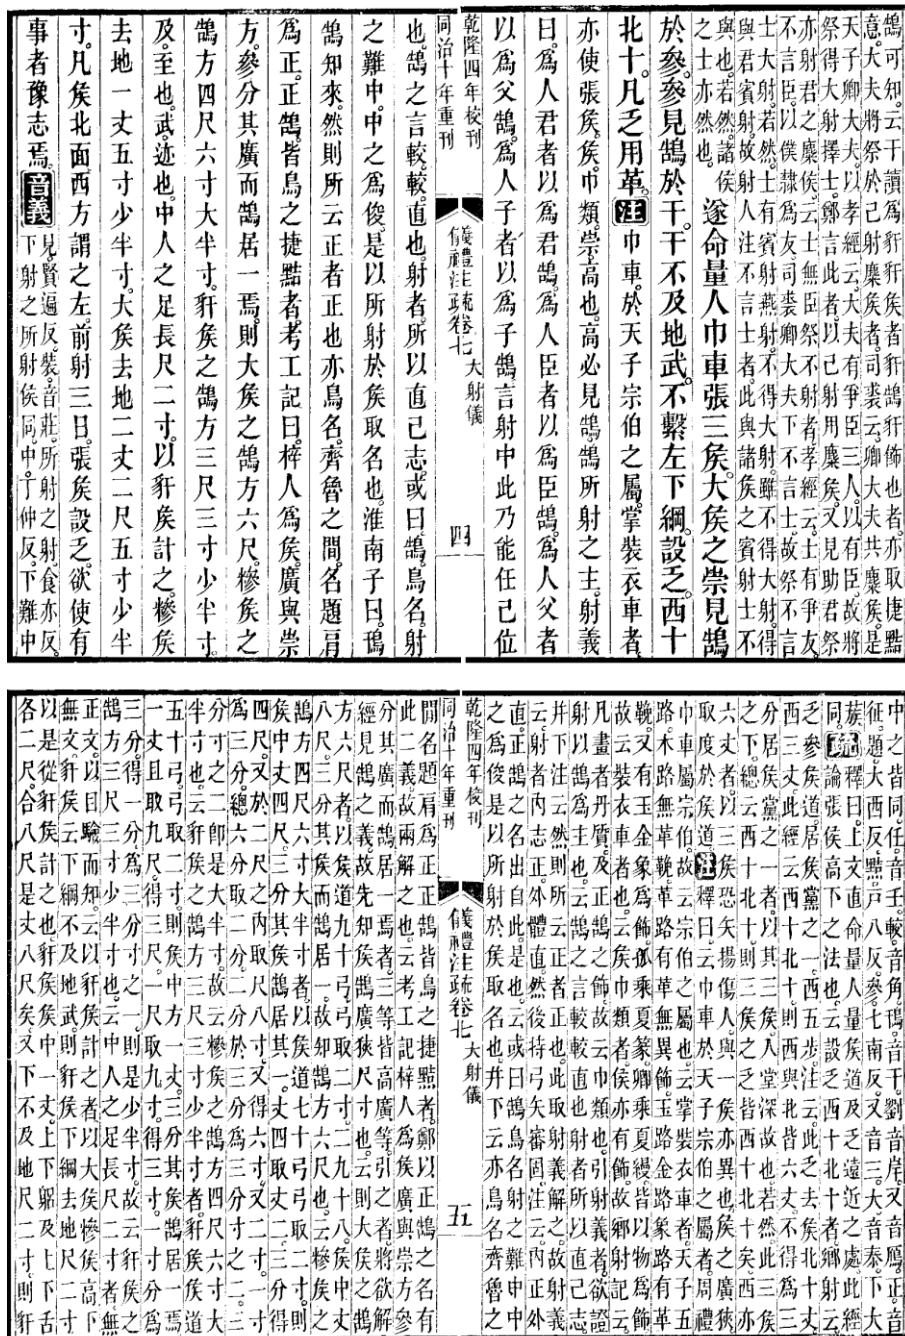 鵠可知。云干讀爲豻豻侯者豻鵠豻飾也者。亦取捷黠
意。大夫將祭於己射麋侯者。司裘云。卿大夫共麋侯。是
天子卿大夫。以孝經云。大夫有爭臣三人。以有臣。故將
祭得大射擇士。鄭言此者。以己射用麋侯。又見助君祭
亦射君之麋侯。云士無臣祭不射者。孝經云。士有爭友。
不言臣。以僕隸爲友。司裘卿大夫下不言士。故祭不言
士大射。若然。士有賓射燕射。不得大射。雖不得大射。得
與君賓射。故射人注不言士者。此與諸侯之賓射士不
與也。若然。諸侯
之士亦然也。
遂命量人巾車張三侯。大侯之崇見鵠
於參。參見鵠於干。干不及地武。不繫左下綱。設乏。西十
北十。凡乏用革。注巾車。於天子宗伯之屬。掌裝衣車者。
亦使張侯。侯。巾類。崇。高也。高必見鵠。鵠所射之主。射義
曰。爲人君者以爲君鵠。爲人臣者以爲臣鵠。爲人父者
以爲父鵠。爲人子者以爲子鵠。言射中此乃能任己位
乾隆四年校刊
同治十年重刊
儀禮注疏卷七 大射儀
四
也。鵠之言較。較。直也。射者。所以直己志。或曰。鵠。鳥名。射
之難中。中之爲俊。是以所射於侯取名也。淮南子曰。鳱
鵠知來。然則所云正者正也亦鳥名。齊魯之間。名題肩
爲正。正鵠。皆鳥之捷黠者。考工記曰。梓人爲侯。廣與崇
方。參分其廣而鵠居一焉。則大侯之鵠方六尺。糝侯之
鵠方四尺六寸大半寸。豻侯之鵠方三尺三寸少半寸。
及。至也。武。迹也。中人之足長尺二寸。以豻侯計之。糝侯
去地一丈五寸少半寸。大侯去地二丈二尺五寸少半
寸。凡侯北面西方謂之左。前射三日。張侯設乏。欲使有
事者豫志焉。音義
見。賢遍反。裝。音莊。所射之射。食亦反。
下射之所射侯同。中。丁仲反。下難中
中之皆同。任。音壬。較。音角。鳱。音干。劉音岸。又音鴈。正。音
征。題。大西反。黠。戸八反。參。七南反。又音三。大。音泰。下大
族同。疏釋曰。上文直命量人量侯道及乏遠近之處。此經
論張侯高下之法也。云設乏西十北十者。鄉射云
乏參侯道。居侯黨之一。西五步。注云。此乏去侯北十丈。
西三丈。此經云西十北十。則西與北皆六丈。不得爲三
分居侯黨之一者。以其三侯。人堂深故也。若然。此三侯
之下。總云西十北十。則三侯之乏皆西十北十矣。西亦
六丈者。以三侯恐矢揚傷人。與一侯亦異也。侯之廣狹
取度於侯道。注釋曰。云巾車於天子宗伯之屬者。周禮
巾車屬宗伯。故云宗伯之屬也。云掌裝衣車者。天子五
路。木路無革鞔。革路有革無異飾。玉路金路象路有革
鞔。又有玉金象爲飾。孤乘夏篆。卿乘夏縵。皆以物爲飾。
故云裝衣車者也。云侯巾類者。侯亦有飾。故鄉射記云。
凡畫者丹質。及正鵠之飾。故云巾類也。引射義者。欲證
射以鵠爲主也。云鵠之言較較直也射者所以直己志。
并下注云然則所云正者正也。此取射義解之。故射義
云。射者内志正。外體直。然後持弓矢審固。注云。内正外
直。正鵠之名出自此。是也。云或曰鵠鳥名射之難中中
之爲俊是以所射於侯取名也。并下云亦鳥名齊魯之
乾隆四年校刊
同治十年重刊
儀禮注疏卷七 大射儀
五
閒名題肩爲正正鵠皆鳥之捷黠者。鄭以正鵠之名有
此二義。故兩解之也。云考工記梓人爲侯廣與崇方參
分其廣而鵠居一焉者。三等高廣等。引之者。將欲解
經見鵠之義。故先知侯鵠廣狹尺寸也。云則大侯之鵠
方六尺者。以侯道九十弓。弓取二寸。二九十八。侯中丈
八尺。三分其侯而鵠居一。故知鵠方六尺也。云糝侯之
鵠方四尺六寸大半寸者。以侯道七十弓。弓取二寸。則
侯中丈四尺。三分其侯。鵠居其一。丈四取丈二。三分得
四尺。又於二尺之内取尺八寸。又得六寸。又二寸。一寸
爲三分。總六分。取二分。二分於三分寸爲三分寸之二。三
分寸之二卽是大半寸。故云糝侯之鵠方四尺六寸大
半寸也。云豻侯之鵠方三尺三寸少半寸者。豻侯侯道
五十弓。弓取二寸。則侯中方一丈。三分其侯。鵠居一焉。
一丈且取九尺。得三尺。一尺取九寸。得三寸。一寸分爲
三分。得一分爲三分寸之一。則是少半寸。故云豻侯之
鵠方三尺三寸少半寸也。云中人之足長尺二寸者。無
正文。以目驗而知。云以豻侯計之者。以大侯糝侯高下
無文。豻侯云下綱不及地武。則豻侯下綱去地尺二寸。
以是從豻侯計之也。豻侯侯中一丈。上下躬及上下舌
各二尺。合八尺。是丈八尺矣。又下不及地尺二寸。則豻